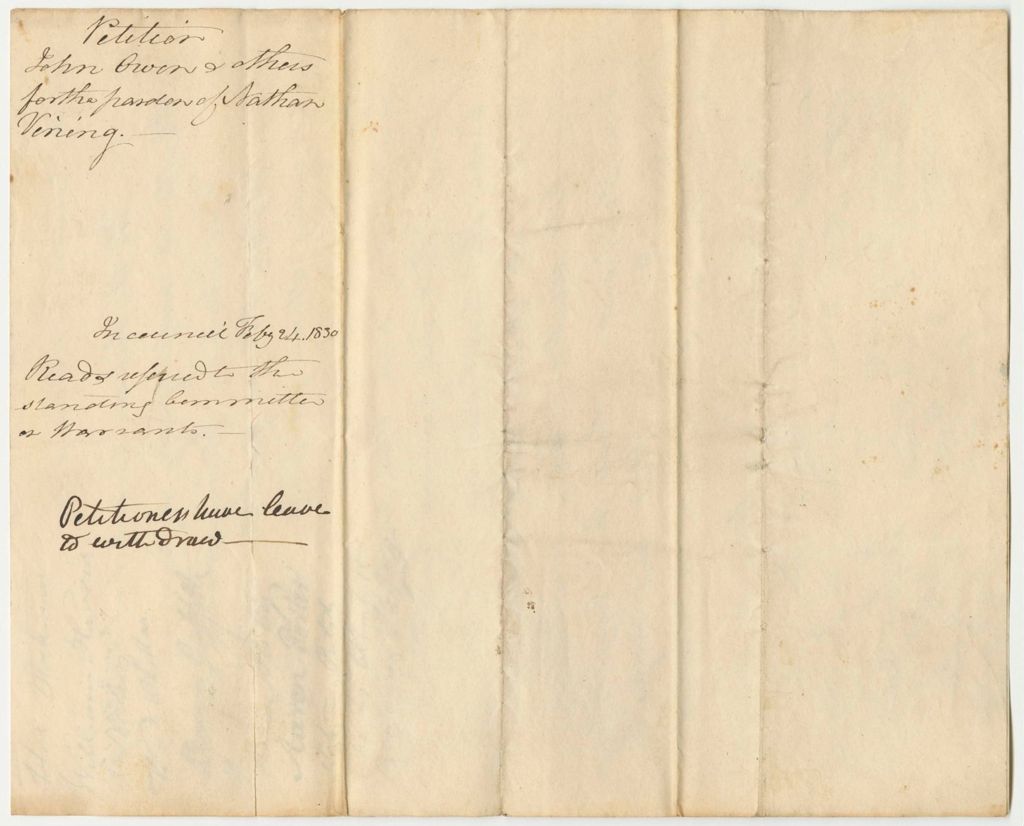 Petition
John Owen & others
for the pardon of Nathan
Vining. —
In council Feby 24. 1830
Read & referred to the
standing Committee
on Warrants. —
Petitioners have leave
to withdraw —